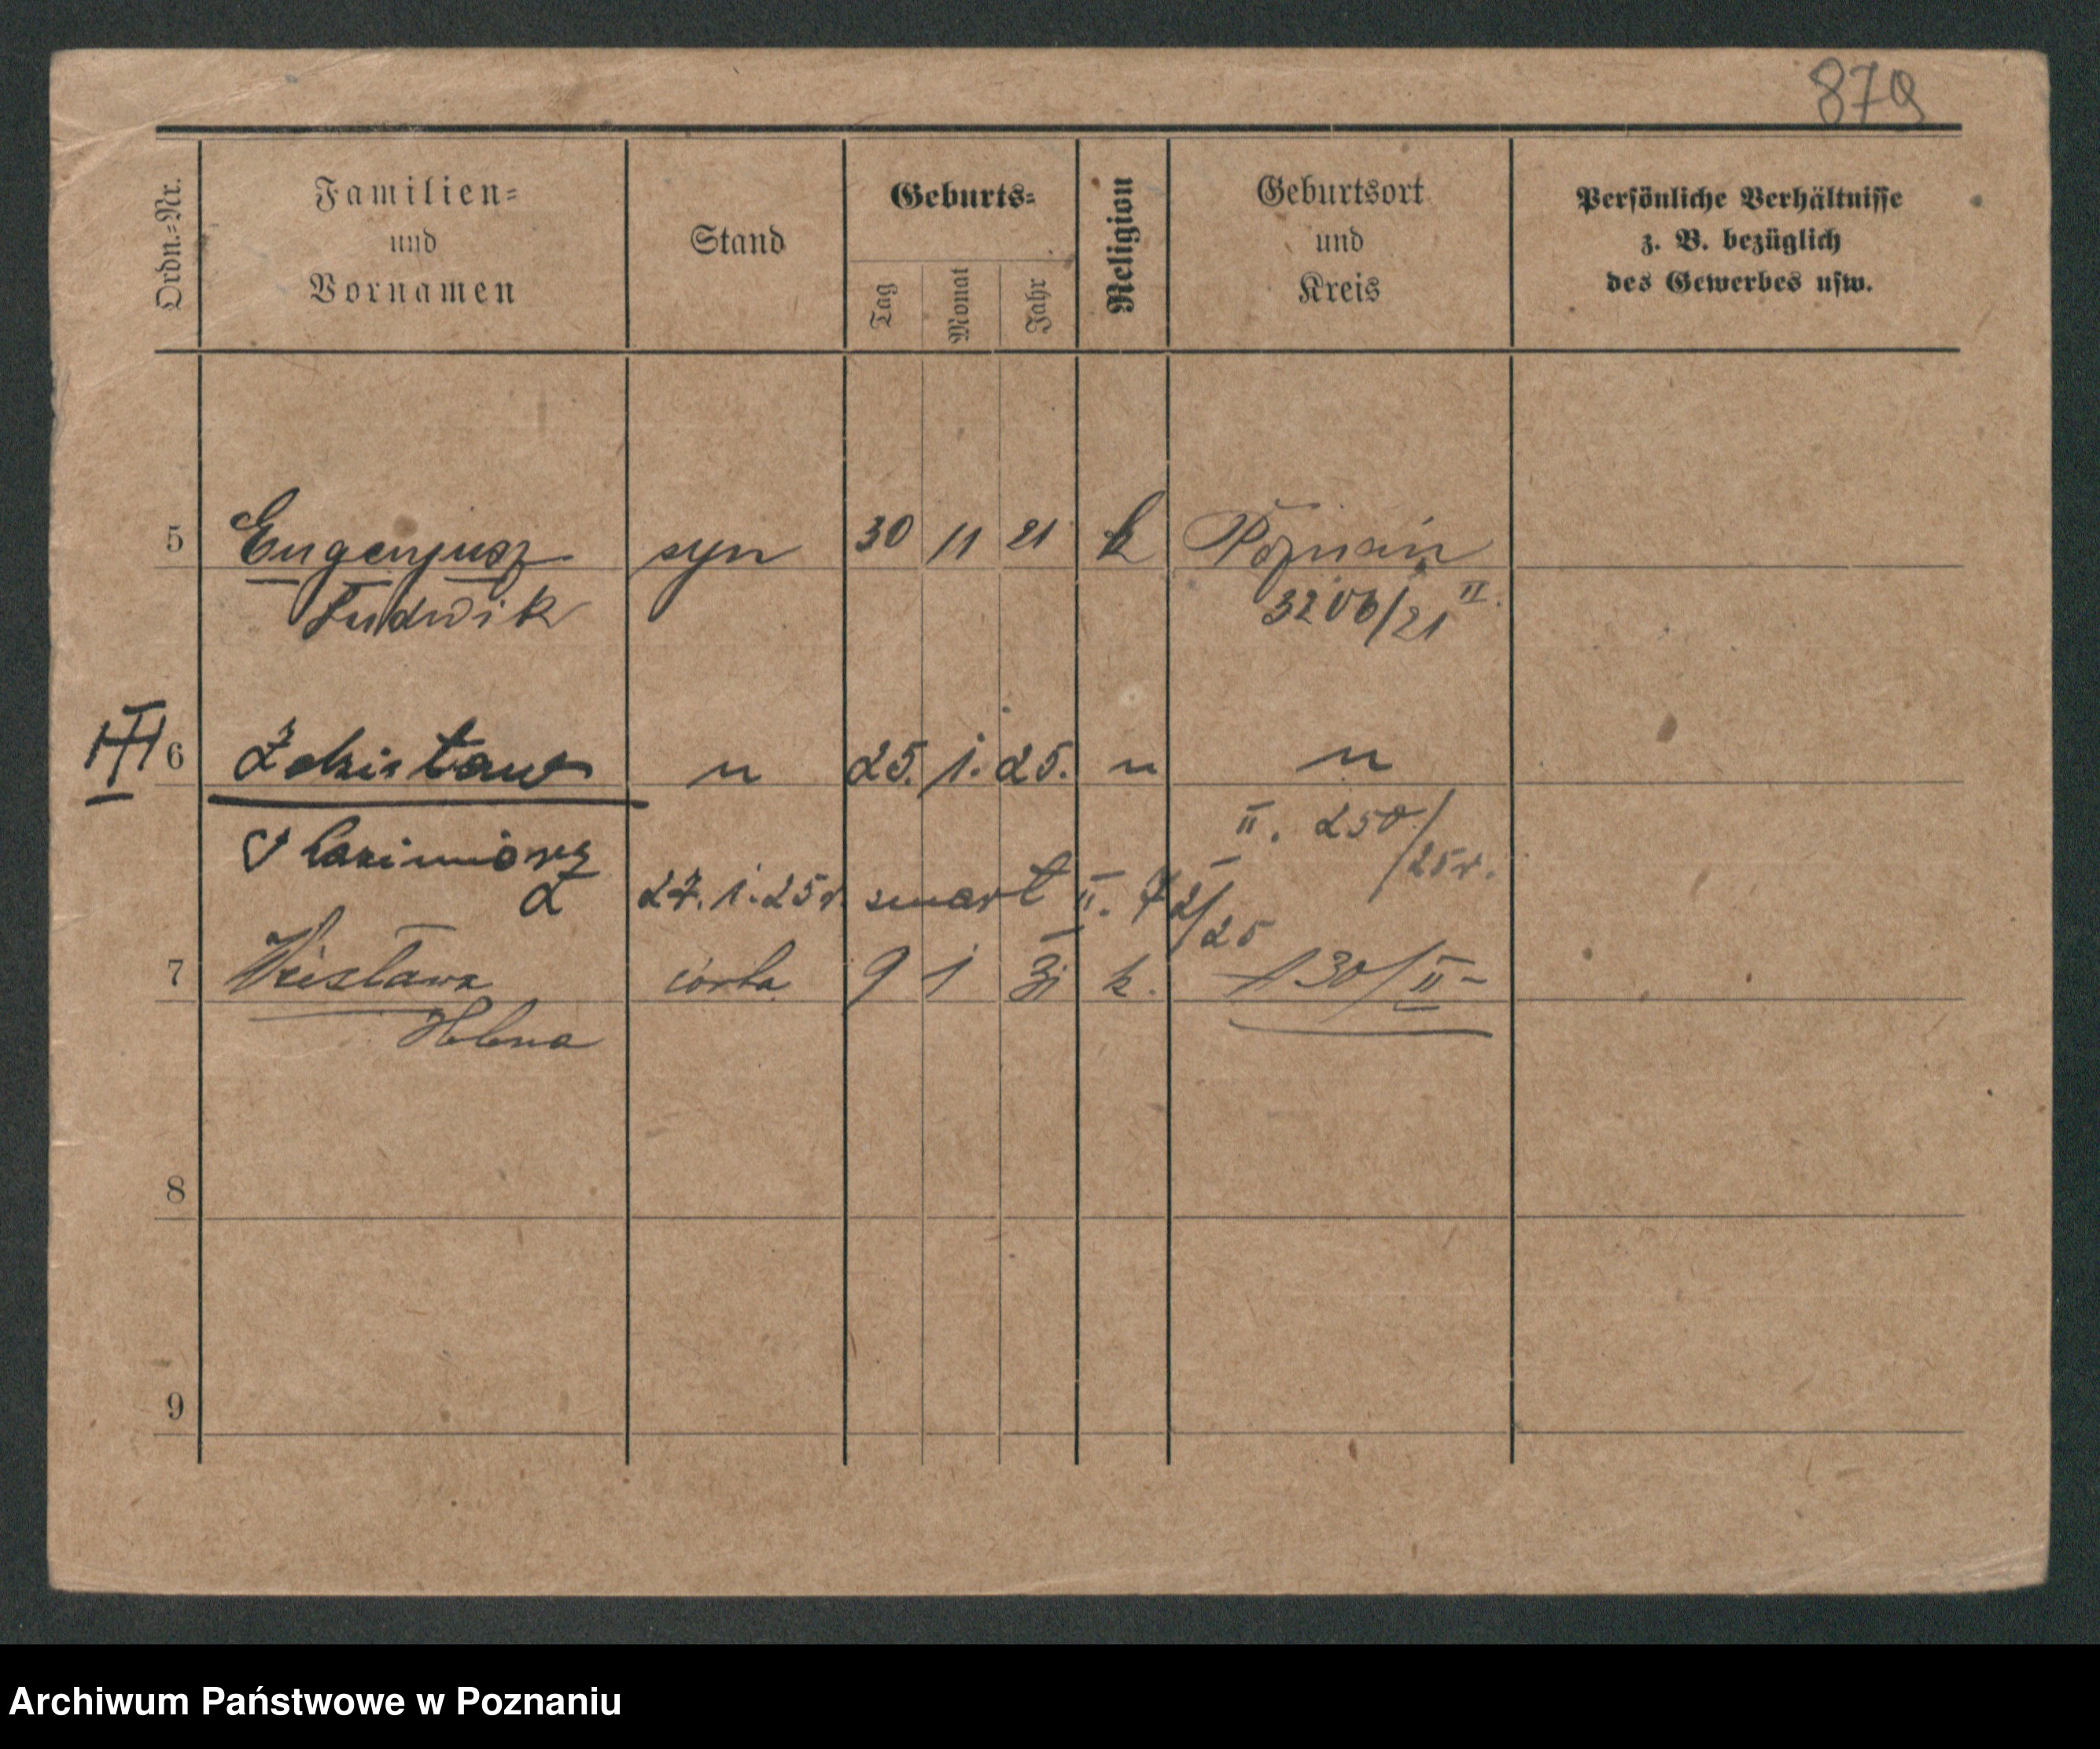 879
Ordn.-Nr.
Familien-
und
Vornamen
Stand
Geburts-
Tag
Monat
Jahr
Religion
Geburtsort
und
Kreis
Persönliche Verhältnisse
z. B. bezüglich
des Gewerbes usw.
5 Eugenjusz syn 30 11 21 k Poznań
Ludwik 3206/21 II.
6 Zdzisław " 25. 1. 25. " "
Kazimierz II. 250/25r.
27. 1. 25r. zmarł II. 72/25
7 Wiesława córka 9 1 31 k. 130/II-
Helena
8
9
Archiwum Państwowe w Poznaniu